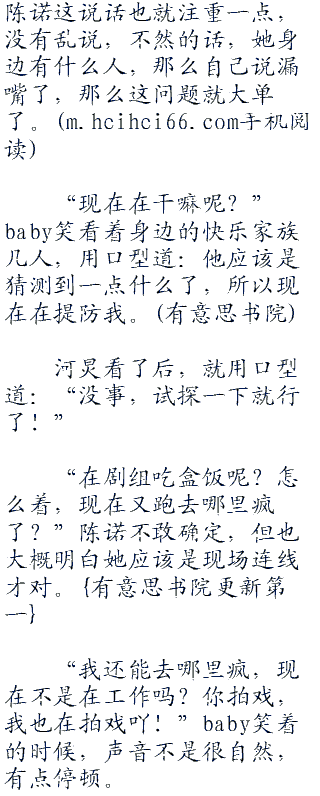 陈诺这说话也就注重一点，
没有乱说，不然的话，她身
边有什么人，那么自己说漏
嘴了，那么这问题就大单
了。(m.hcihci66.com手机阅
读)
“现在在干痲呢？”
baby笑看着身边的快乐家族
几人，用口型道：他应该是
猜测到一点什么了，所以现
在在提防我。(有意思书院)
河炅看了后，就用口型
道：“没事，试探一下就行
了！”
“在剧组吃盒饭呢？怎
么着，现在又跑去哪里疯
了？”陈诺不敢确定，但也
大概明白她应该是现场连线
才对。{有意思书院更新第
一}
“我还能去哪里疯，现
在不是在工作吗？你拍戏，
我也在拍戏吖！”baby笑着
的时候，声音不是很自然，
有点停顿。